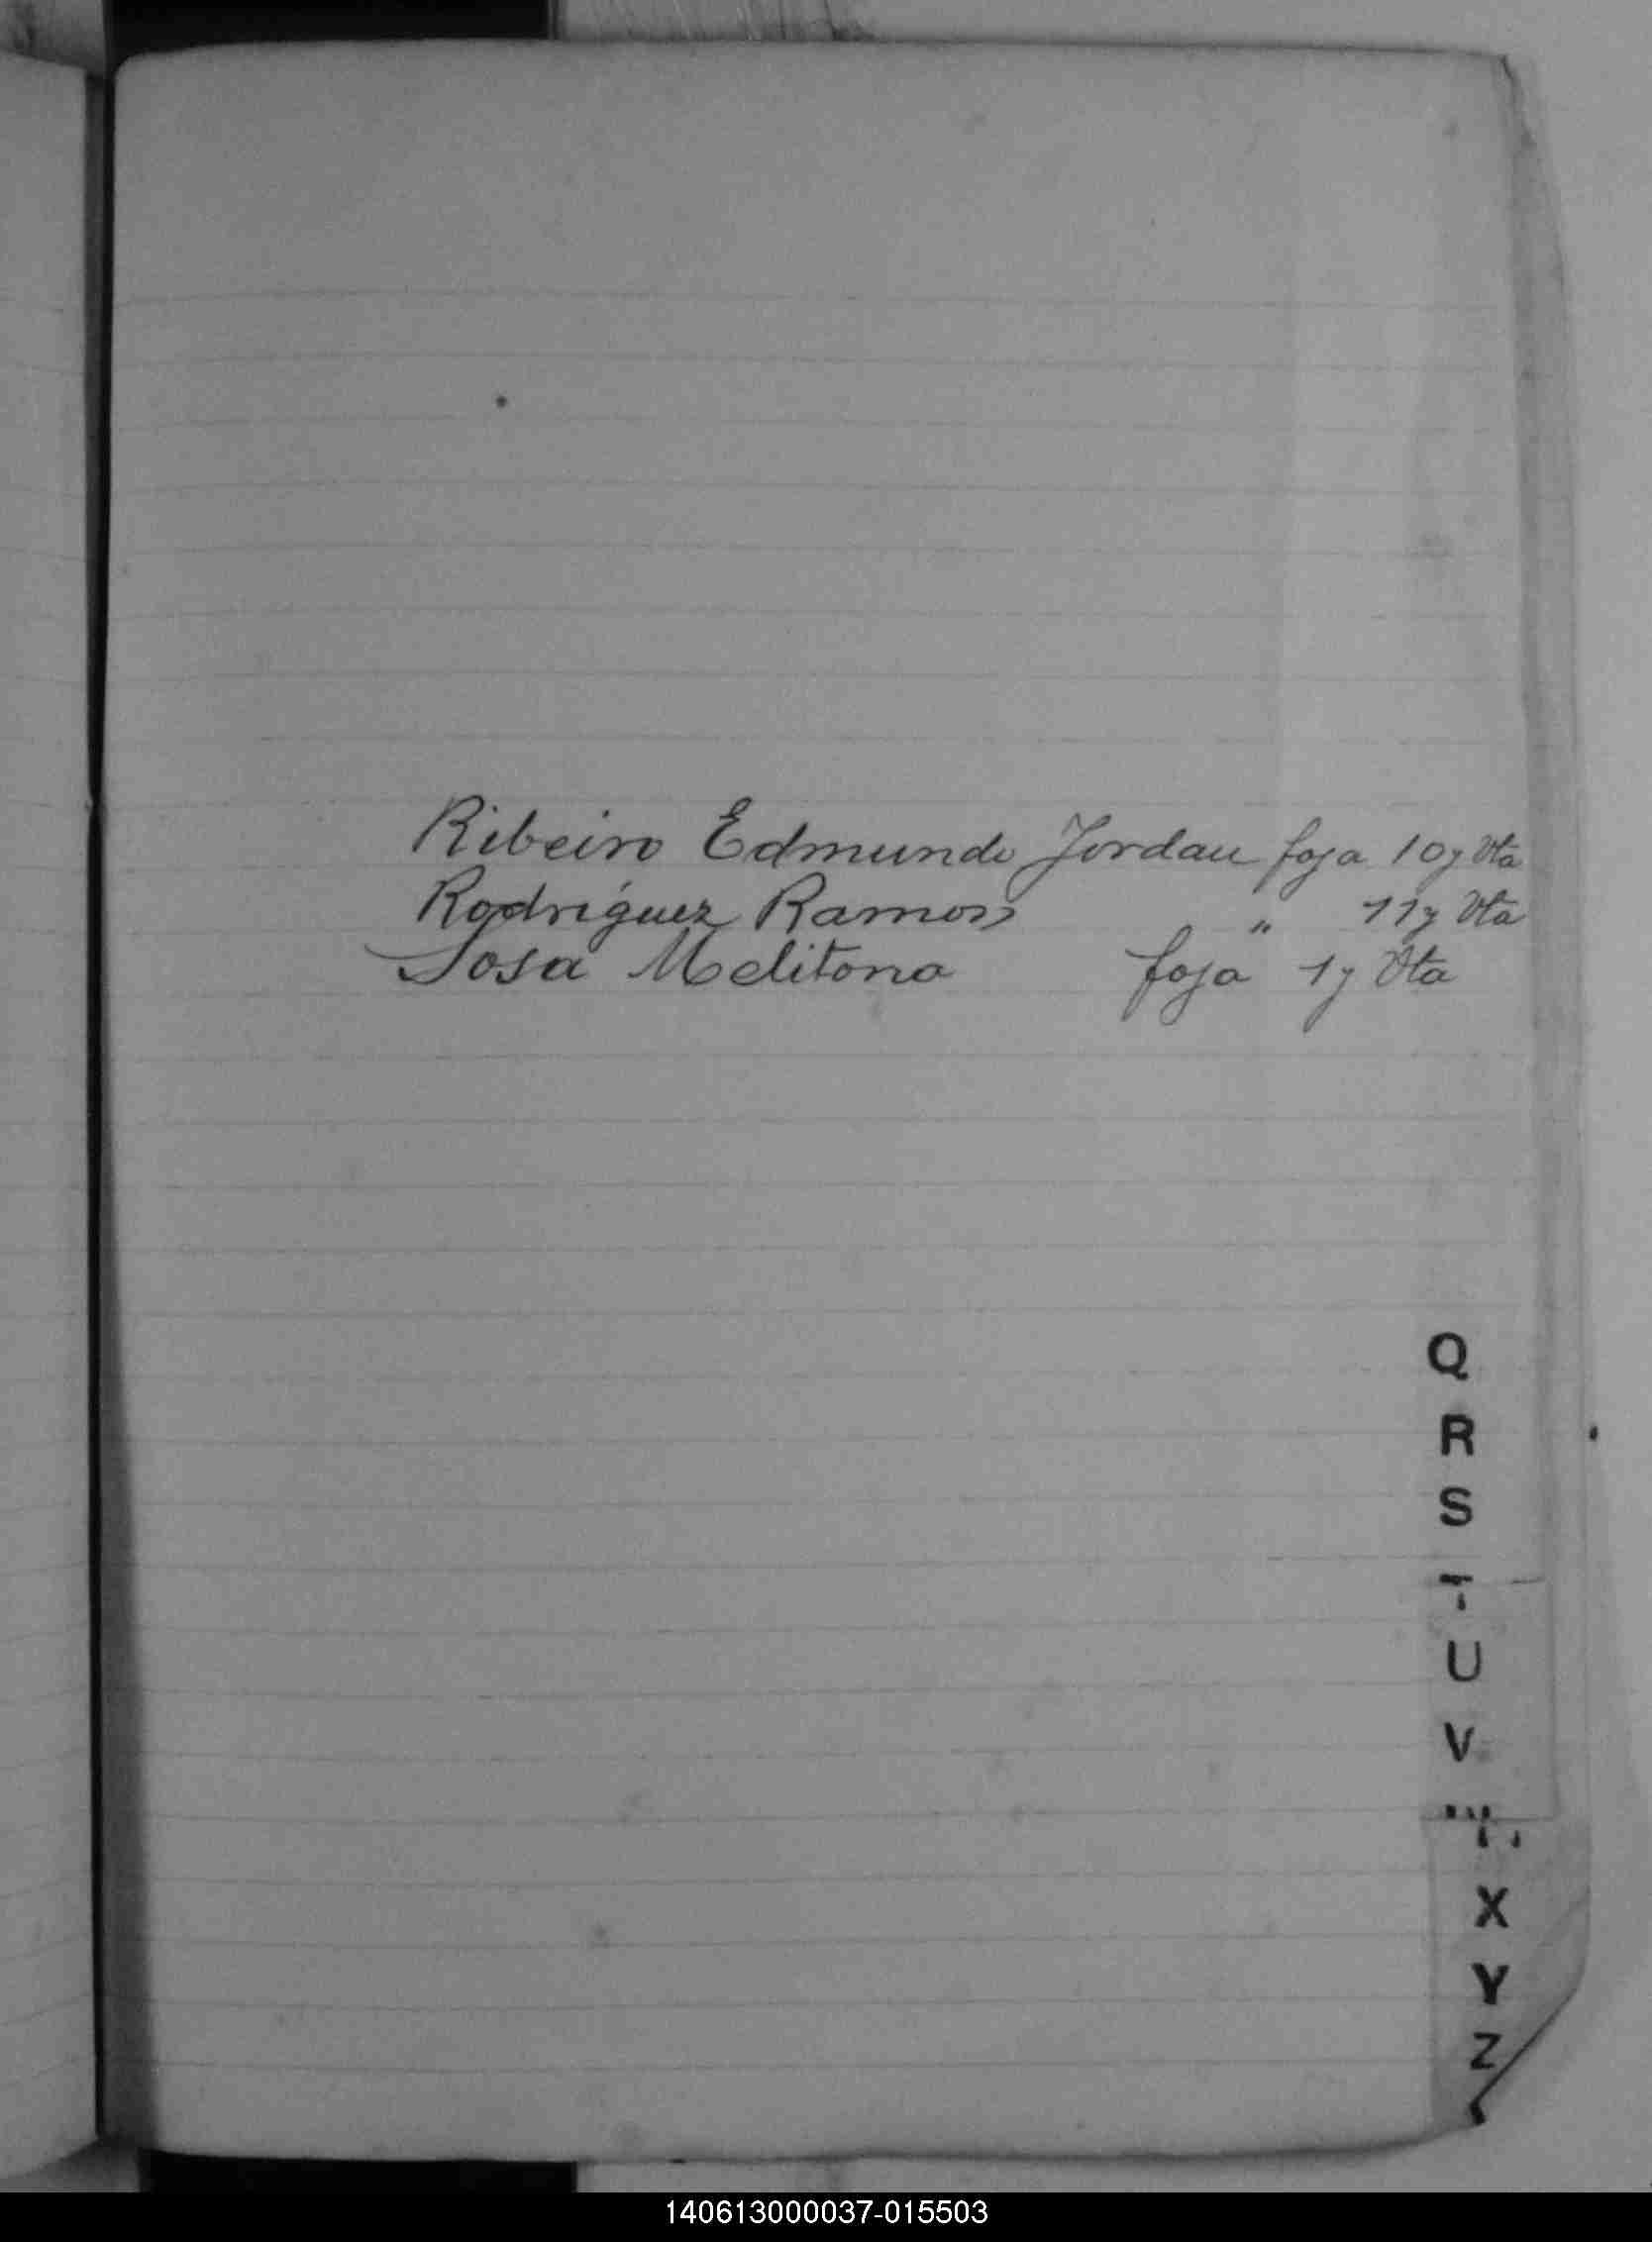 Ribeiro Edmundo Jordan foja 10 y Vta
Rodríguez Ramos " 11 y Vta
Sosa Melitona foja 1 y Vta
Q
R
S
T
U
V
X
Y
Z
140613000037-015503